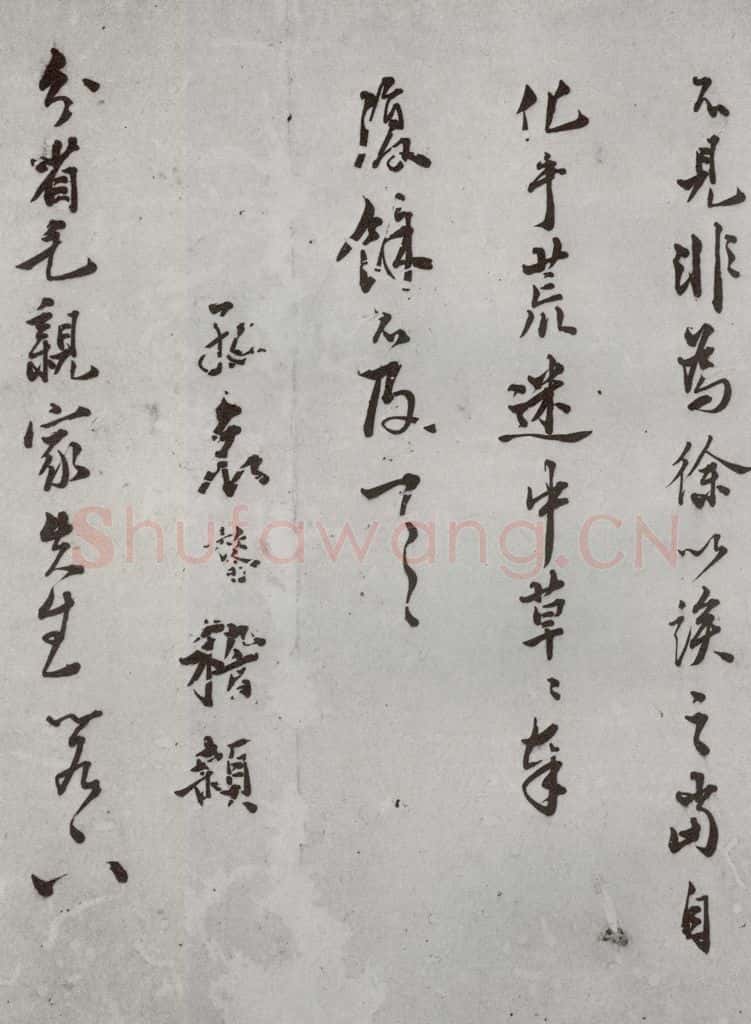 不見非為徐以俟之當自
化乎荒迷中草〻奉
復餘不及一〻
稽顙
省元親家先生 〻八
Shufawang.CN